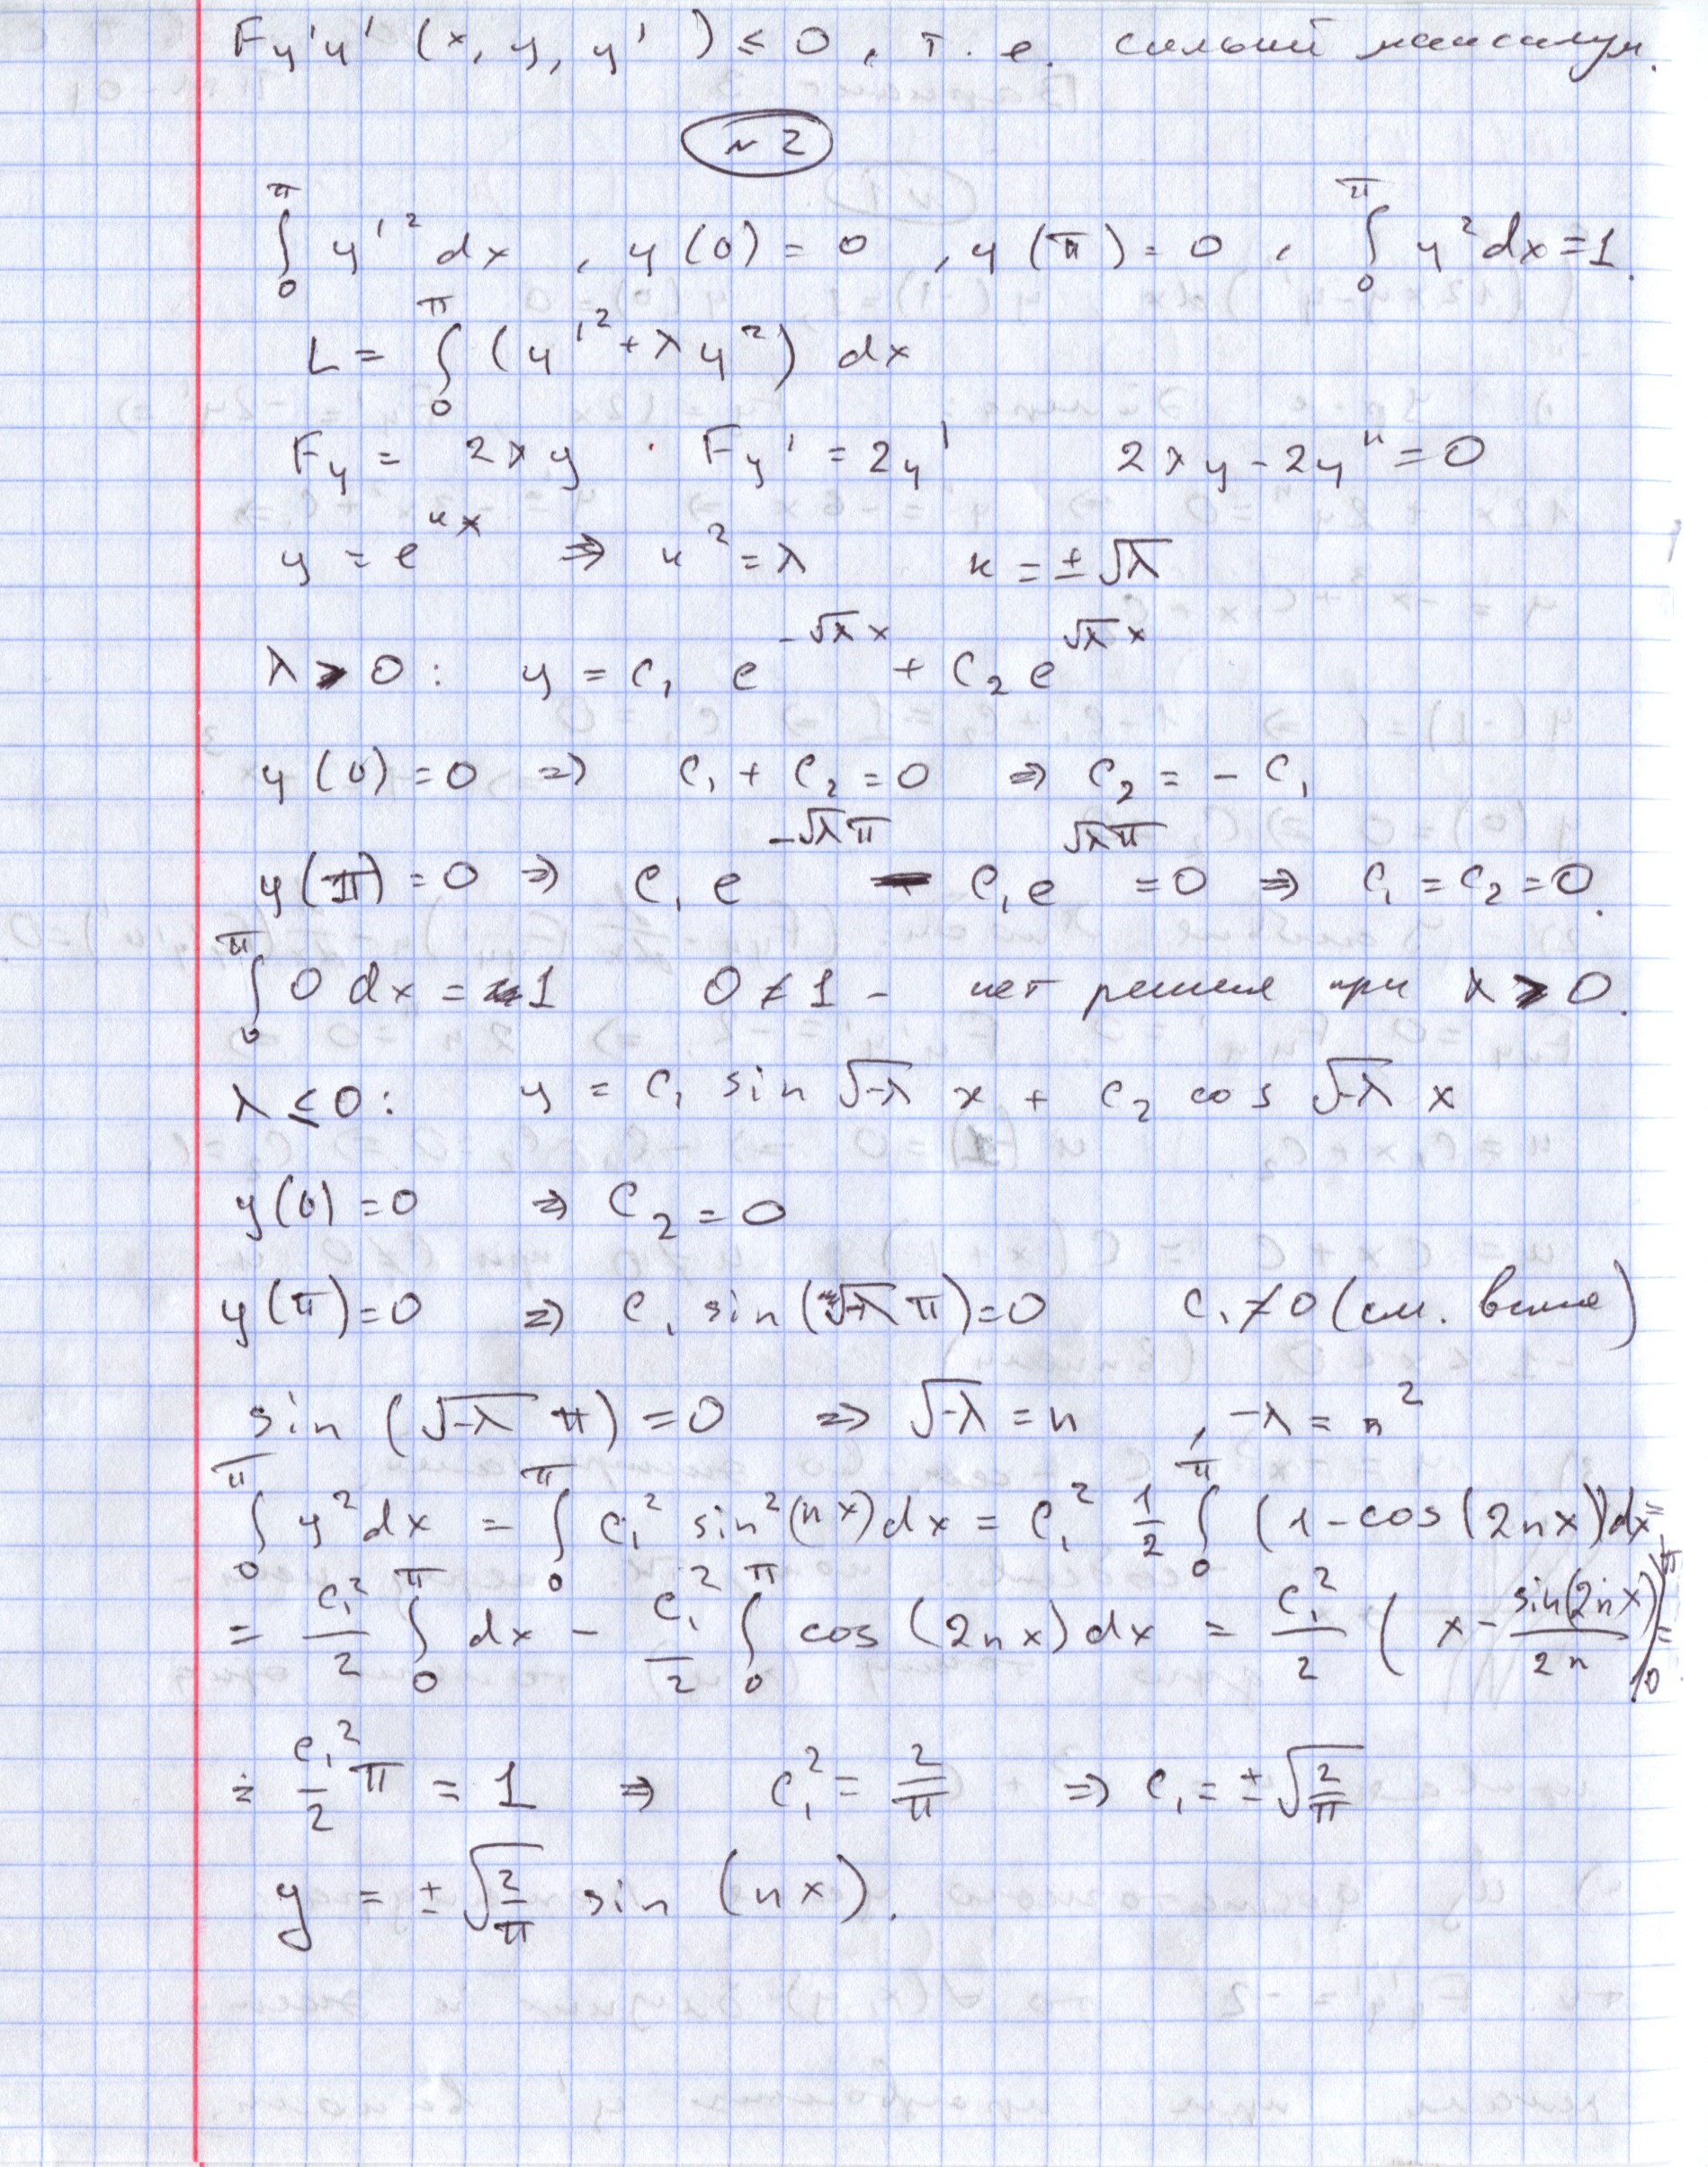 F_{y'y'} (x, y, y') ≤ 0, т. е. сильный максимум.
№ 2
∫_0^π y'^2 dx, y(0) = 0, y(π) = 0, ∫_0^π y^2 dx = 1.
L = ∫_0^π (y'^2 + λy^2) dx
F_y = 2λy F_{y'} = 2y' 2λy - 2y'' = 0
y = e^{кx} ⇒ к^2 = λ к = ±√λ
λ > 0: y = C_1 e^{-√λ x} + C_2 e^{√λ x}
y(0) = 0 ⇒ C_1 + C_2 = 0 ⇒ C_2 = - C_1
y(π) = 0 ⇒ C_1 e^{-√λ π} - C_1 e^{√λ π} = 0 ⇒ C_1 = C_2 = 0.
∫_0^π 0 dx = 1 0 ≠ 1 - нет решения при λ > 0.
λ ≤ 0: y = C_1 sin √-λ x + C_2 cos √-λ x
y(0) = 0 ⇒ C_2 = 0
y(π) = 0 ⇒ C_1 sin(√-λ π) = 0 C_1 ≠ 0 (см. выше)
sin (√-λ π) = 0 ⇒ √-λ = n, -λ = n^2
∫_0^π y^2 dx = ∫_0^π C_1^2 sin^2(nx) dx = C_1^2 1/2 ∫_0^π (1 - cos(2nx)) dx =
= C_1^2/2 ∫_0^π dx - C_1^2/2 ∫_0^π cos(2nx) dx = C_1^2/2 (x - sin(2nx)/2n)|_0^π =
= C_1^2/2 π = 1 ⇒ C_1^2 = 2/π ⇒ C_1 = ±√(2/π)
y = ±√(2/π) sin (nx).